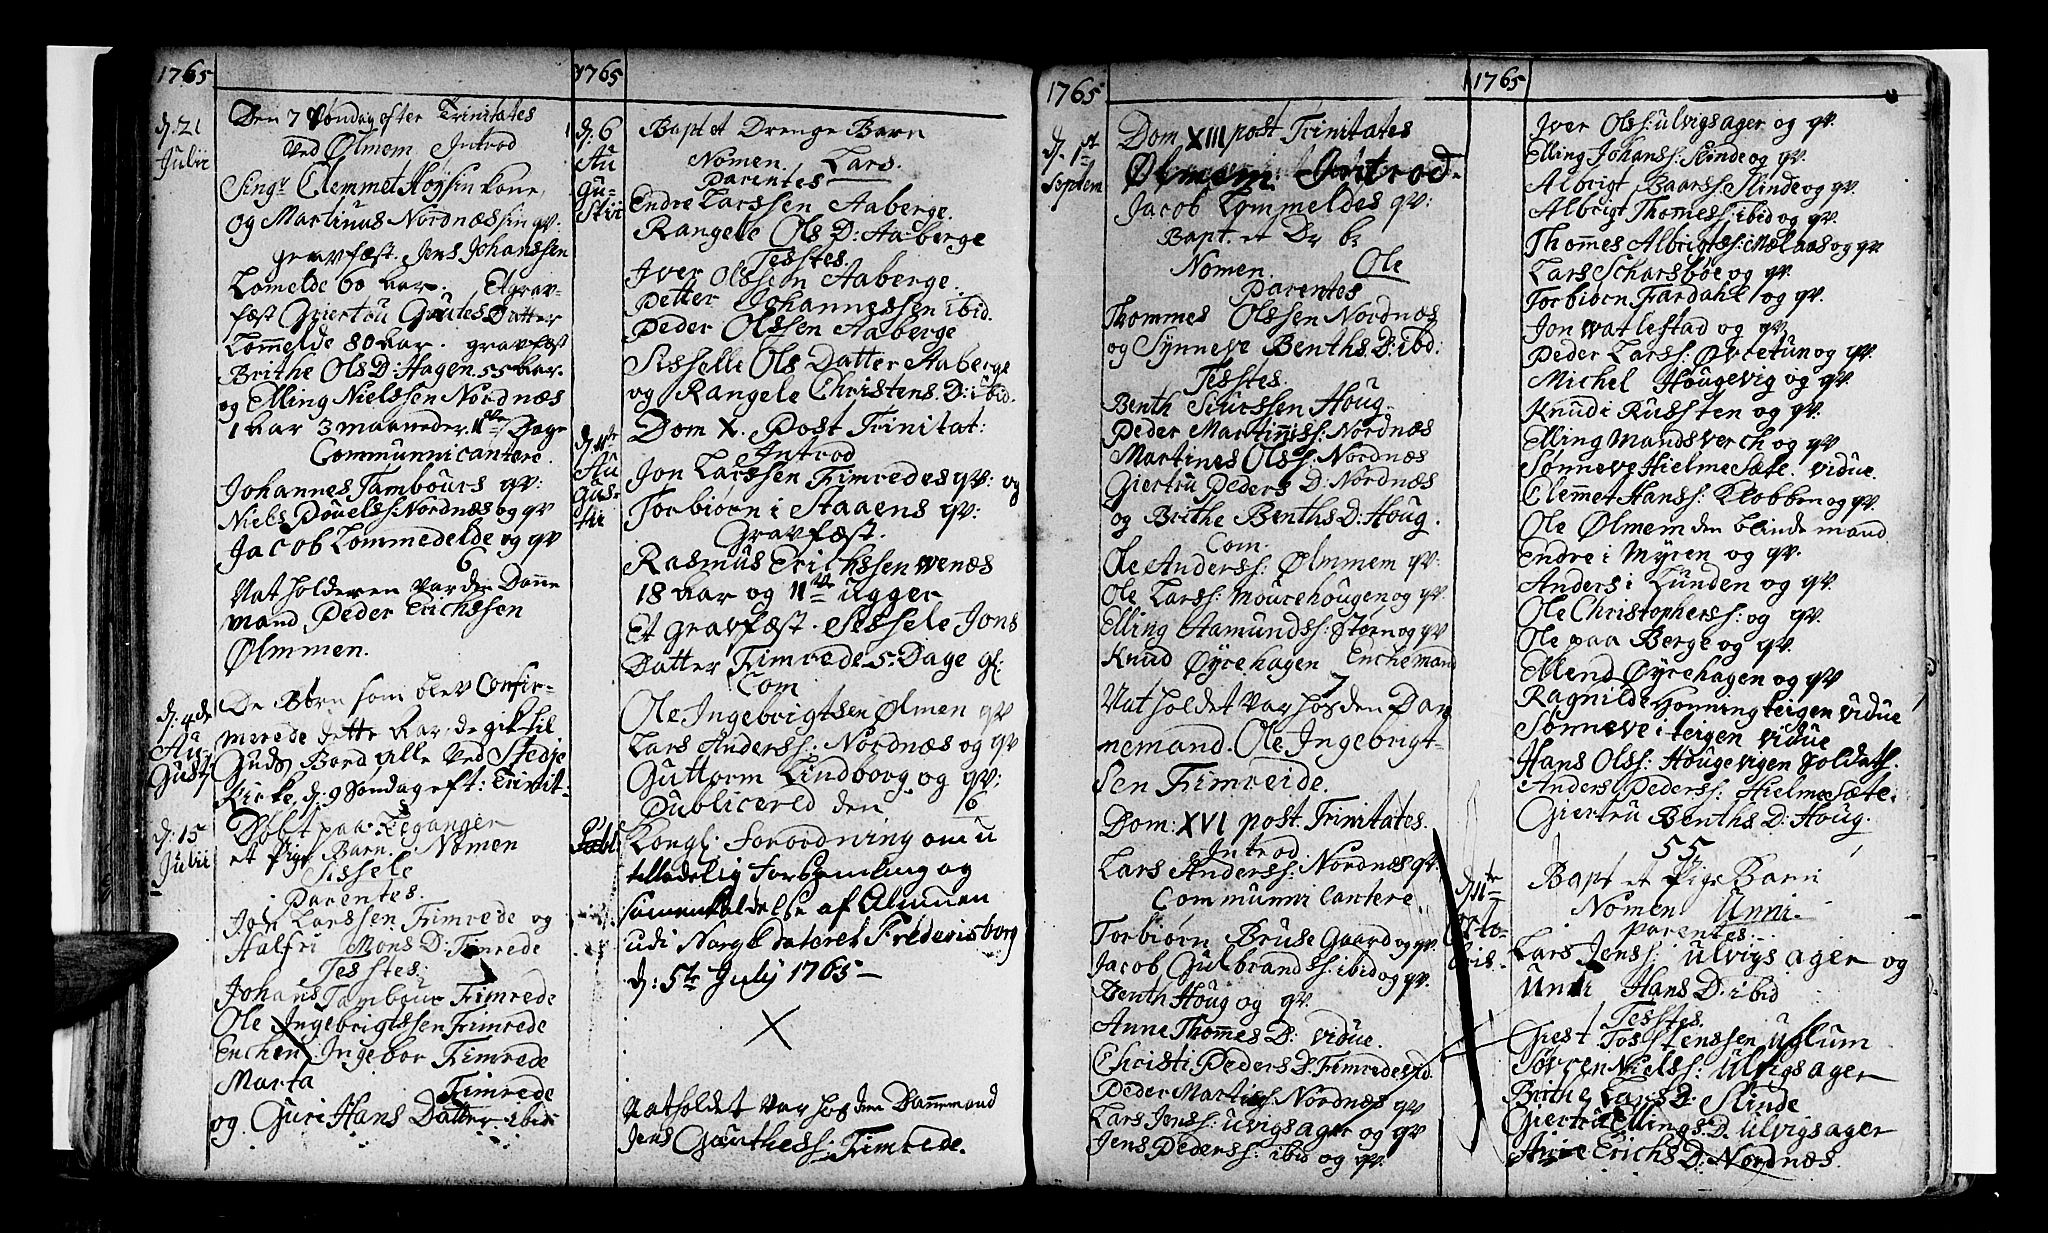 1765
d. 21
Julii
Den 7 Søndag efter Trinitates
ved Ølmem Introd
Sing: Clemmet Røysin kone,
og Martinus Nordnæs sin qv:
gravfæst. Jens Johanssen
Lomelde 60 Aar. Et grav-
fæst Giertru Gautes Datter
Lommelde 80 Aar. gravfæst
Brithe Ols D: Hagen 55 Aar.
og Elling Nielssen Nordnæs
1 Aar 3 maaneder Dage
Communnicantere.
Johannes Tambours qv:
Niels Pouelss: Nordnæs og qv
Jacob Lommedelde og qv
6
Natholderen var den Danne
mand, Peder Erichssen
Ølmmen.
d. 4de
Au-
Gusty
De Børn som blev Confir-
merede dette Aar, de gik til
Guds Bord alle ved Stedje
Kirke, d. 9 Søndag eft: Trinit-
d: 15
Julii
Døbt paa Leganger
et Pige Barn. Nomen
Sissele
Parentes.
Jon Larssen Fimrede og
Halfri Mons D: Fimrede
Tesstes:
Johans Tambour Fimrede
Ole Ingebrigtssen Fimrede
Enchen Ingebor Fimrede
Marta Fimrede
og Guri Hans Datter ibid
1765
d. 6
Au
gu-
stii
Bapt et Drenge Barn
Nomen. Lars.
Parentes
Endre Larssen Aaberge.
Rangele Ols D: Aaberge
Tesstes.
Iver Olssen Aaberge.
Petter Johannessen ibid.
Peder Olssen Aaberge
Sisselle Ols Datter Aaberge
og Rangele Christens D: ibid.
d. 11te
Au
Gus-
tii
Dom X. Post Trinitat:
Introd
Jon Larssen Fimredes qv: og
Torbiørn i Staaens qv:
Gravfæst.
Rasmus Erichssen Wenæs
18 Aar og 11te ugger
Et gravfæst. Sissele Jons
Datter Fimrede 5. Dage gl:
Com
Ole Ingebrigtsen Ølmen qv
Lars Anderss: Nordnæs og qv
Guttorm Lindborg og qv:
Publicered den 6
Publ
Kongl: Forordning om u
tilladelig Forsamling og
samenkaldelse af Almuen
udi Norge dateret Frederisborg
d: 5te July 1765 –
Natholdet var hos den Dannemand
Jens Gauthess: Fimrede.
1765
d. 1st
Septem
Dom XIII post Trinitates
Ølmem Introd.
Jacob Lommeldes qv:
Bapt. et Dr br
Nomen. Ole
Parentes
Thommes Olssen Nordnæs
og Synneve Benths D: ibd:
Tesstes.
Benth Siurssen Houg.
Peder Martinnss: Nordnæs
Martines Olss: Nordnæs
Giertru Peders D: Nordnæs
og Brithe Benths D: Houg.
Com.
Ole Anderss: Ølmmem qv:
Ole Larss: Mourehougen og qv.
Elling Aamundss: Støen og qv
Knud Øyrehagen Enchemand
7
Natholdet var hos den Dan
nemand. Ole Ingebrigt-
sen Fimreide.
Dom: XVI post. Trinitates.
Introd
Lars Anderss: Nordnæs qv:
Communnicantere
Torbiørn Bruse Gaard og qv.
Jacob Gulbrandss: ibid og qv.
Benth Houg og qv.
Anne Thommes D: vidue.
Christi Peders D: Fimrede vid.
Peder Martins: Nordnæs qv
Lars Jenss: Ulvigsager og qv
Jens Pederss: ibid og qv.
1765
Iver Olss: ulvigsager og qv.
Elling Johanss: Slinde og qv:
Albrigt Baarss: Slinde og qv.
Albrigt Thomess: ibid og qv.
Thommes Albrigtss: i Mælaas og qv
Lars Scharsbøe og qv.
Torbiørn Fardahl og qv.
Jon Watlestad og qv.
Peder Larss: Øvretun og qv.
Michel Hougevig og qv.
Knud i Russten og qv.
Elling Mandsverch og qv
Sønneve Hielme Sæte. vidue
Clemmet Hanss: Klobben og qv.
Ole Ølmem den blinde mand
Endre i Myren og qv.
Anders i Lunden og qv.
Ole Christopherss: og qv.
Ole paa Berge og qv.
Ellend Øyrehagen og qv
Ragnilde Honningteigen vidue
Sønneve i teigen vidue
Hans Olss: Hougevigen Soldath.
Anders Pederss: HielmeSæte.
Giertru Benths D: Houg.
55
d. 11te
Octo-
bris.
Bapt et Pige Barn
Nomen Unni.
Parentes:
Lars Jenss: ulvigsager og
Unni Hans D: ibid
Tesstes.
Giest Tosstenssen Uglum
Søvren Nielss: Ulvigsager
Brithe Lars D: Slinde
Giertru Ellings D. Ulvigsager
Anne Erichs D: Nordnæs.